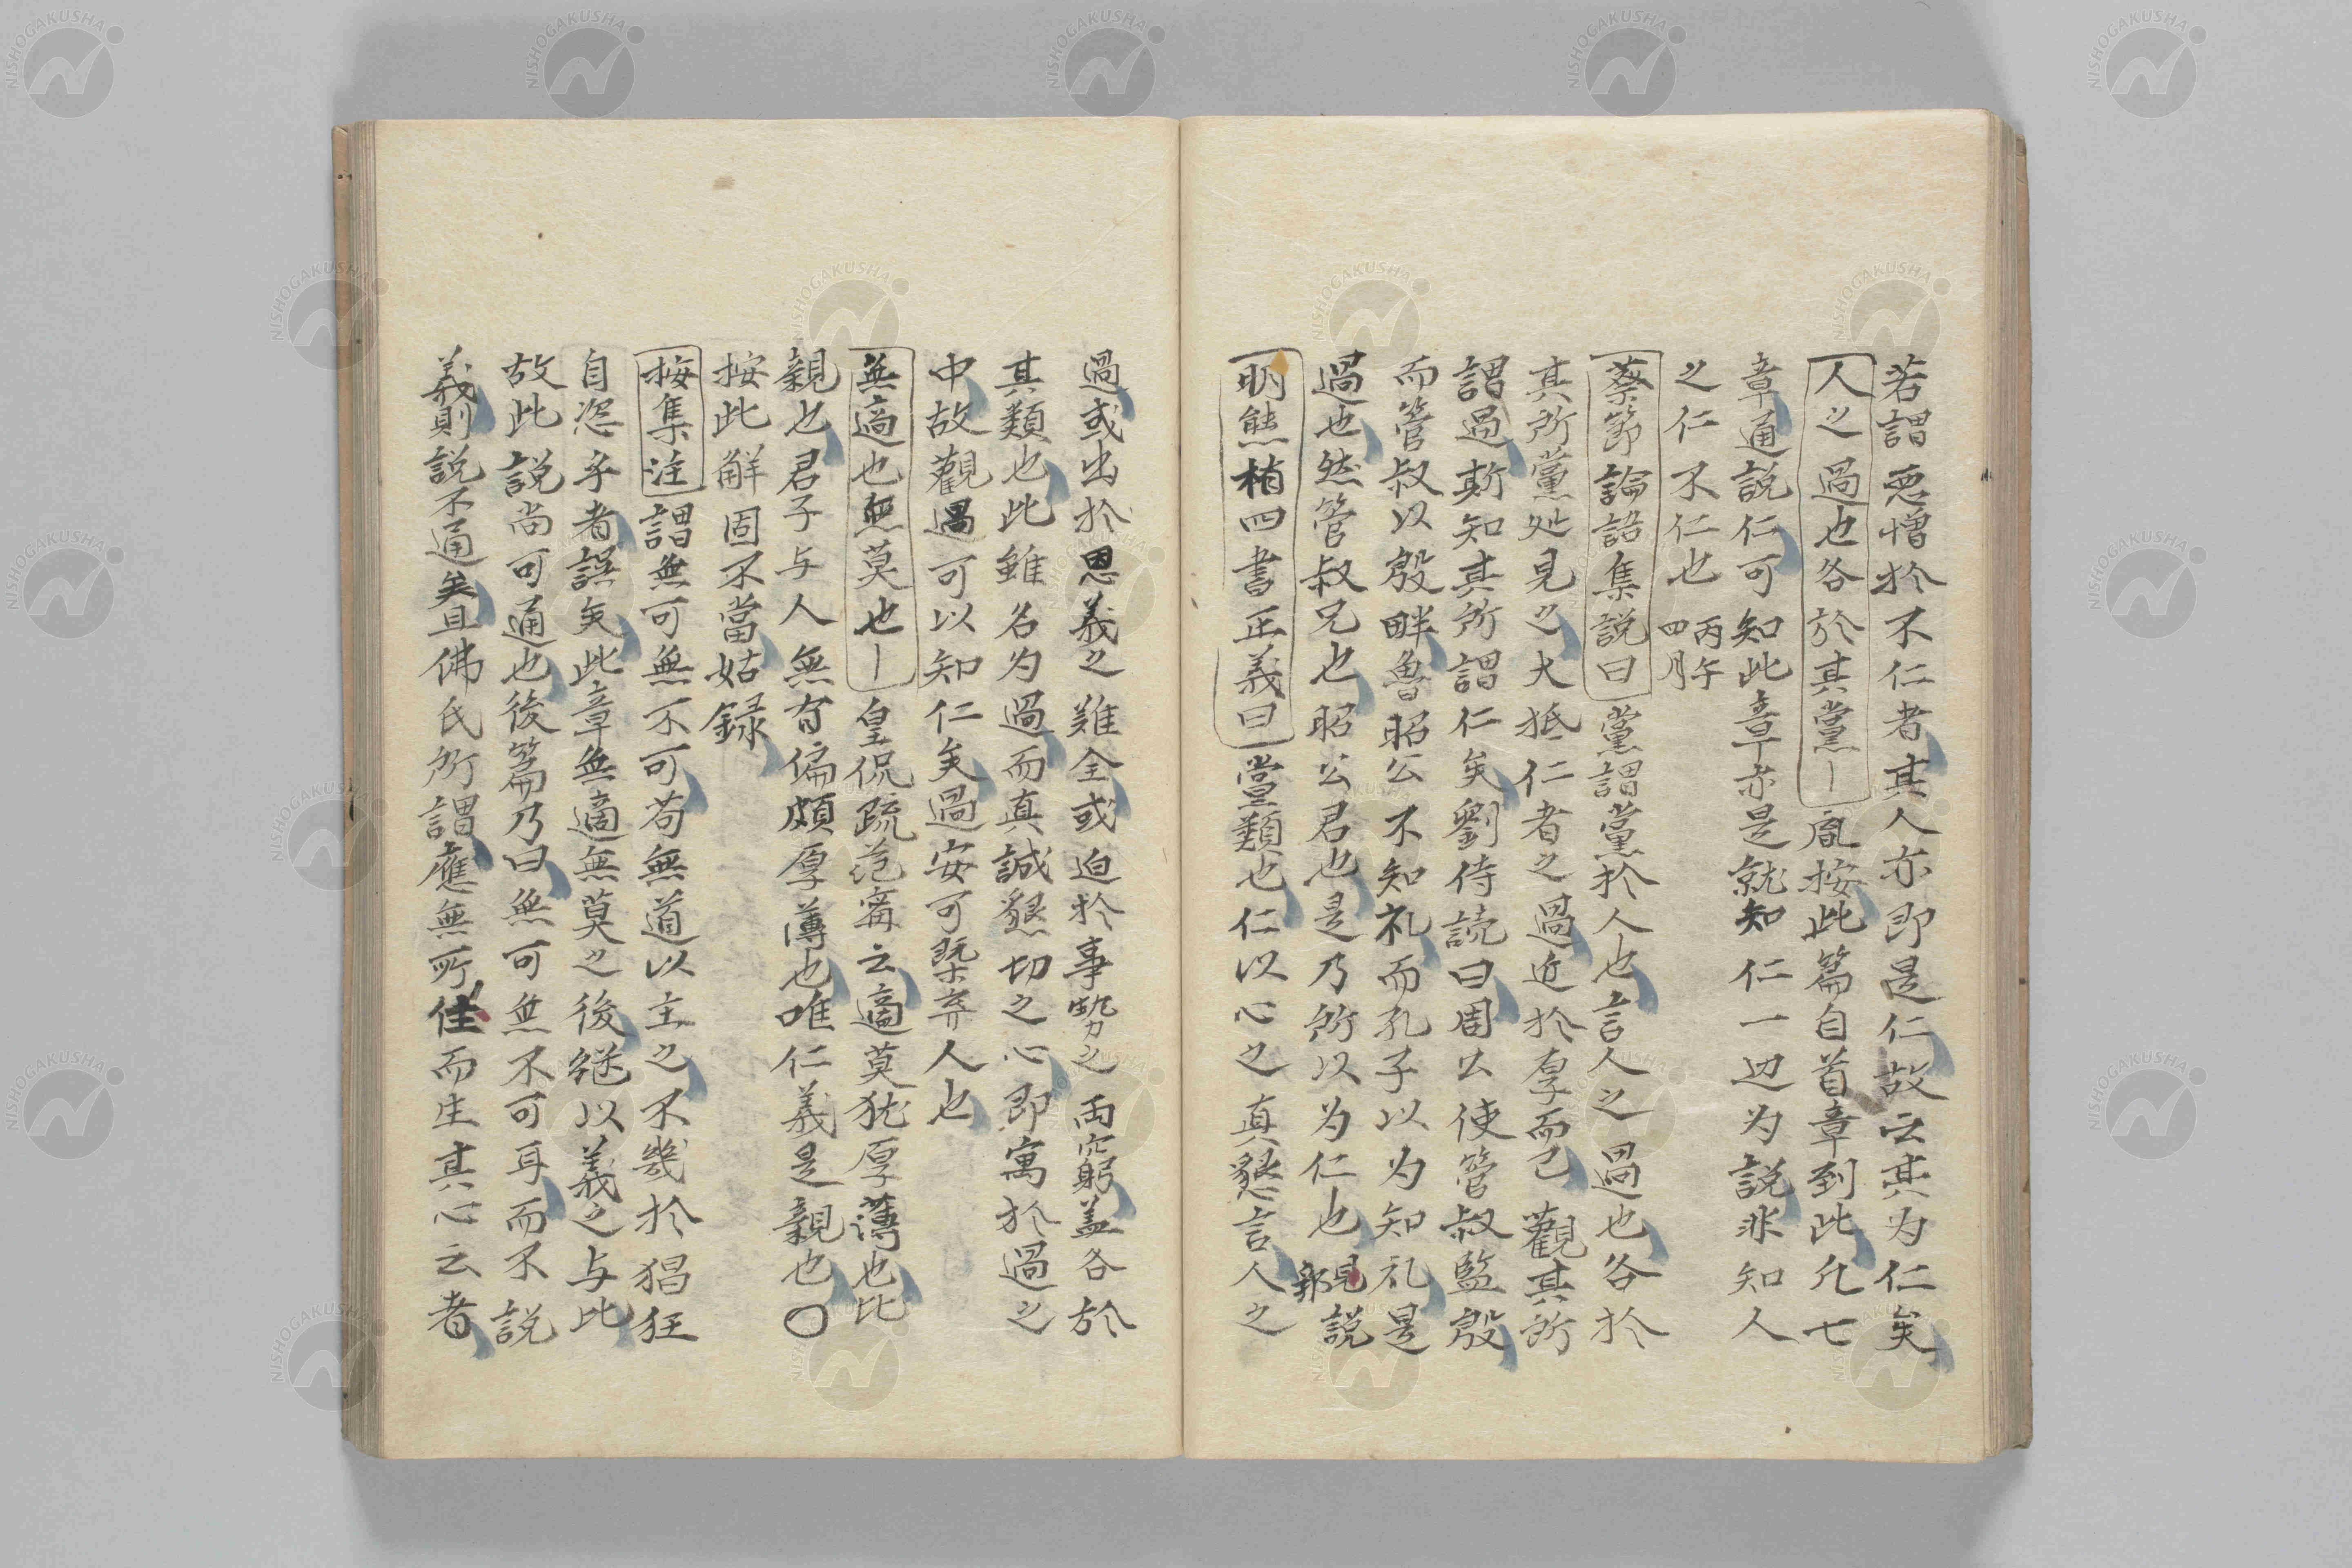 若謂惡憎於不仁者其人亦即是仁故云其为仁矣
人之過也各於其黨｜胤按此篇自首章到此凢七
章通説仁可知此章亦是就知仁一边为説非知人
之仁不仁也丙午四月
蔡節論語集説曰黨謂黨於人也言人之過也各於
其所黨処見之大抵仁者之過近於厚而已觀其所
謂過斯知其所謂仁矣劉侍読曰周公使管叔監殷
而管叔以殷畔魯昭公不知礼而孔子以为知礼是
過也然管叔兄也昭公君也是乃所以为仁也見郭説
明熊梢四書正義曰黨類也仁以心之真懇言人之
過或出於恩義之難全或迫於事勢之両窮盖各於
其類也此雖名为過而真誠懇切之心即寓於過之
中故觀過可以知仁矣過安可槩弃人也
無適也無莫也｜皇侃疏范甯云適莫犹厚薄也比
親也君子与人無有偏頗厚薄也唯仁義是親也〇
按此解固不當姑録
按集注謂無可無不可苟無道以主之不幾於猖狂
自恣乎者誤矣此章無適無莫之後継以義之与比
故此説尚可通也後篇乃曰無可無不可耳而不説
義則説不通矣且佛氏所謂應無所住而生其心云者
NISHOGAKUSHA